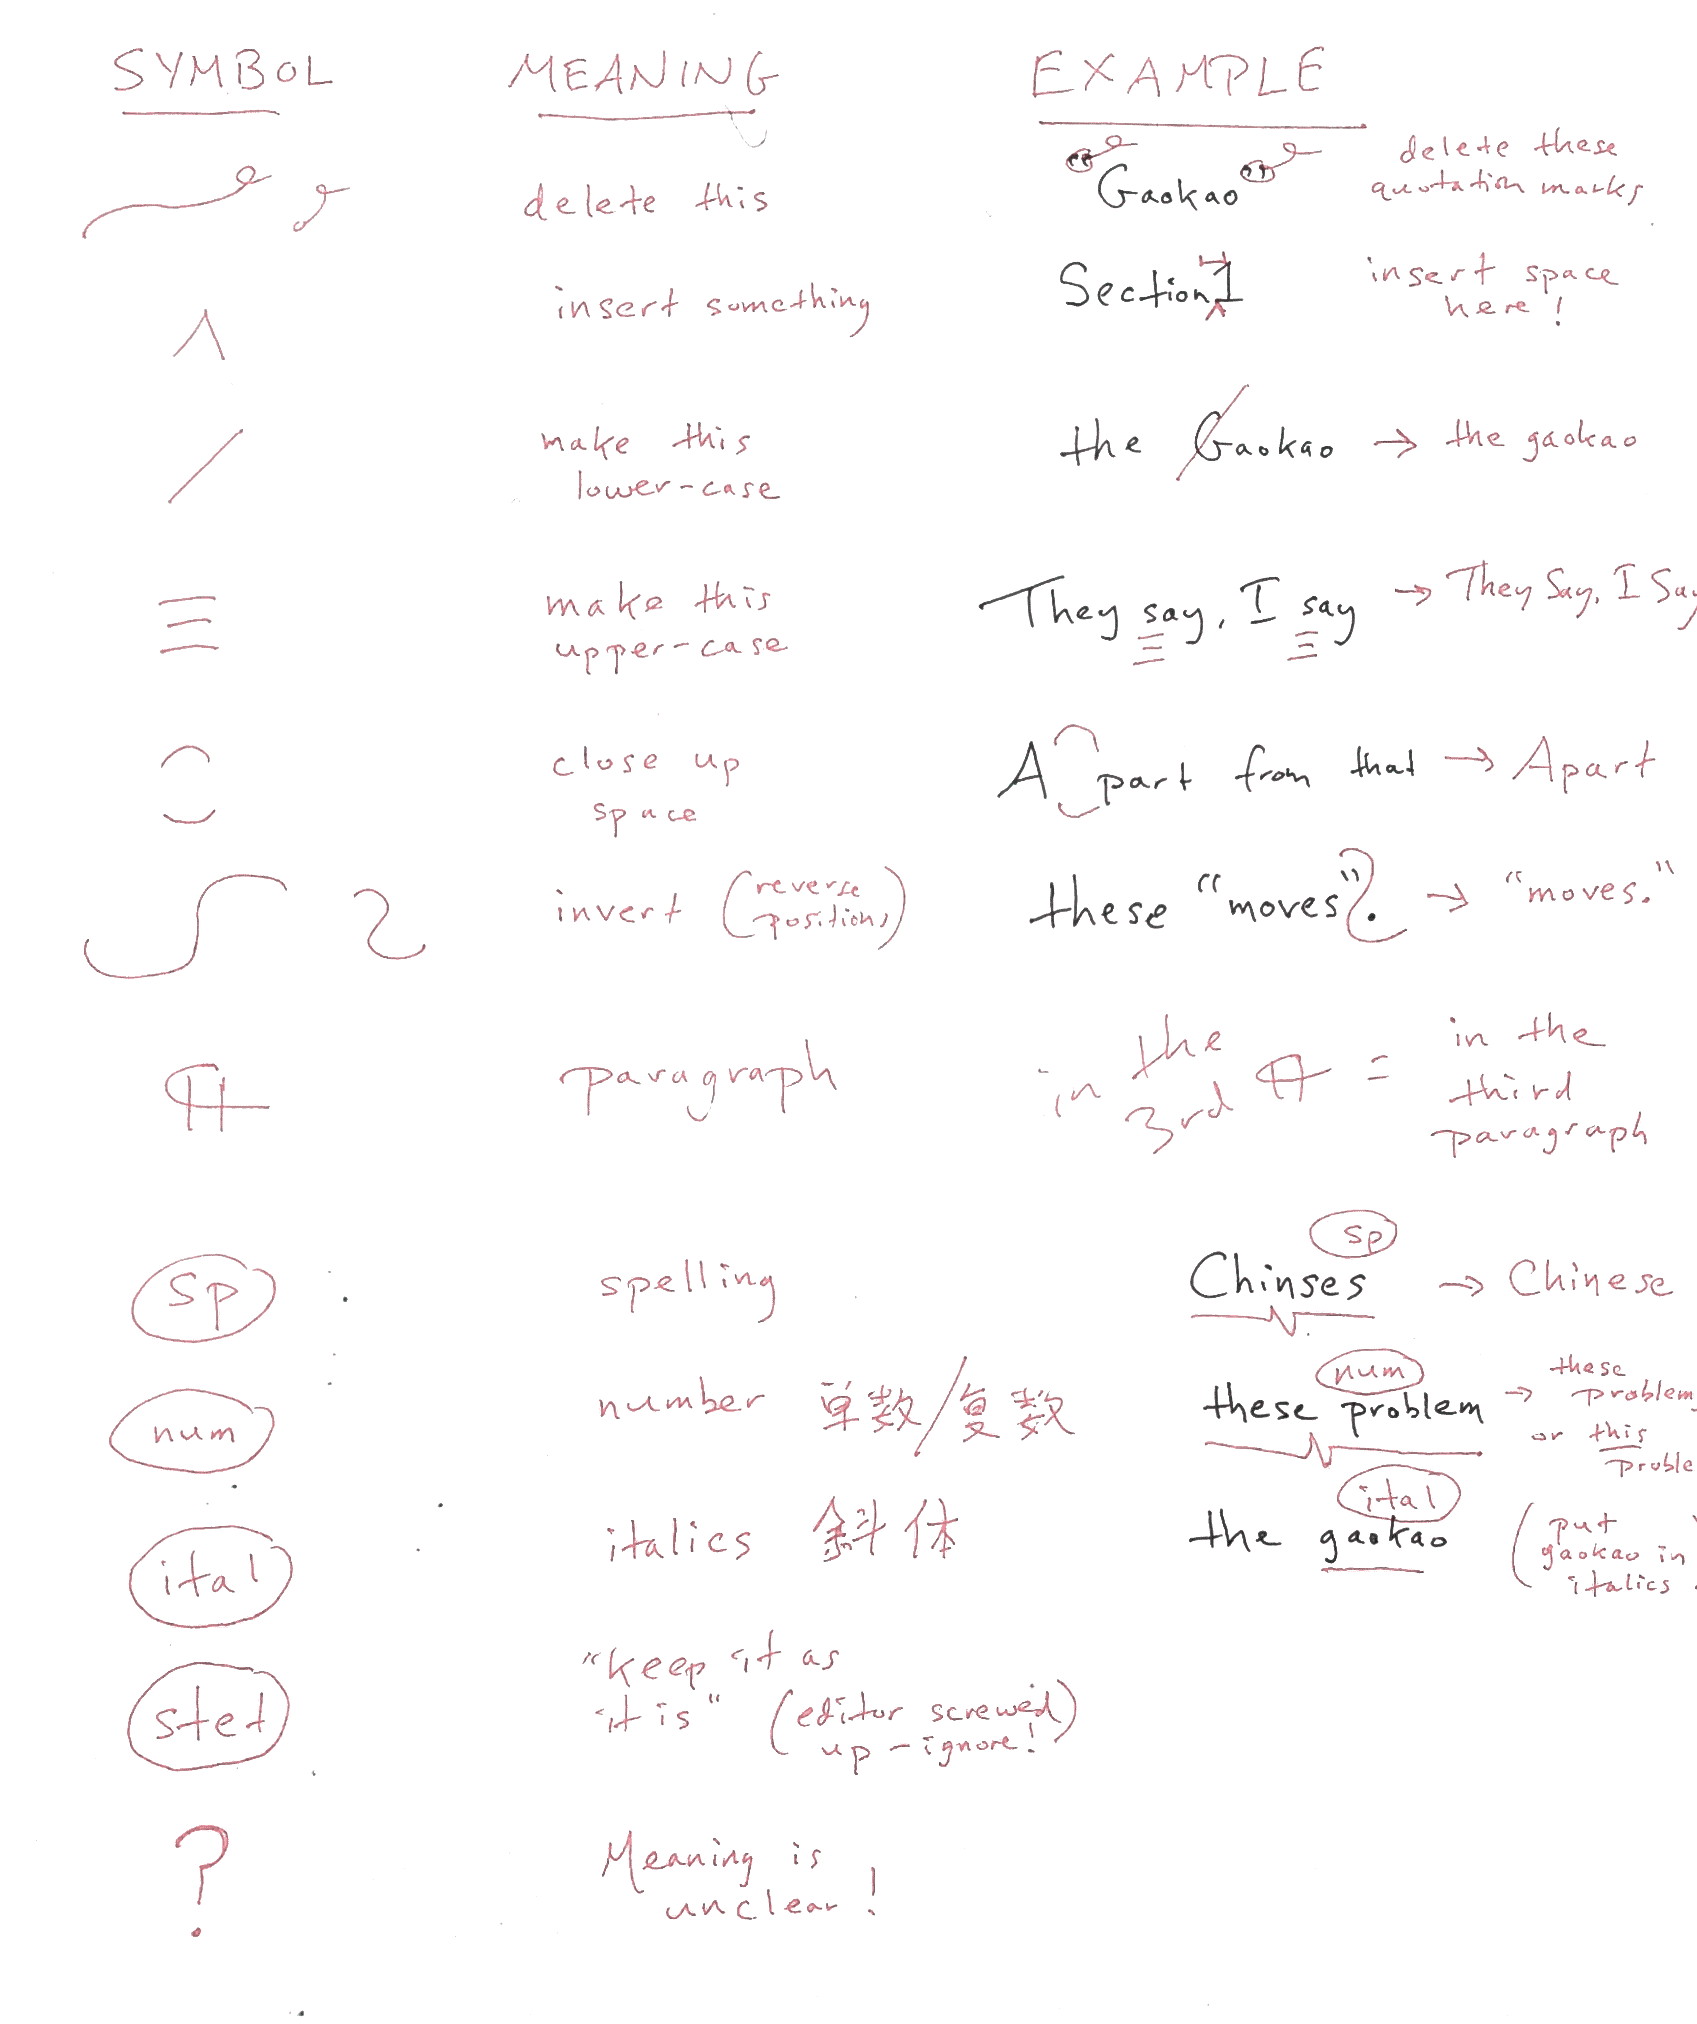 SYMBOL MEANING EXAMPLE
delete this “Gaokao” delete these
quotation marks
insert something Section1 insert space
here!
make this the Gaokao → the gaokao
lower-case
make this They say, I say → They Say, I Say
upper-case
close up A part from that → Apart
space
invert (reverse these “moves”. → “moves.”
positions)
¶ paragraph in the 3rd ¶ = in the
third
paragraph
sp spelling Chinses sp → Chinese
num number 单数/复数 these problem num → these
problem
or this
proble
ital italics 斜体 the gaokao ital (put
gaokao in
italics
stet "keep it as
it is" (editor screwed
up - ignore!)
? Meaning is
unclear!